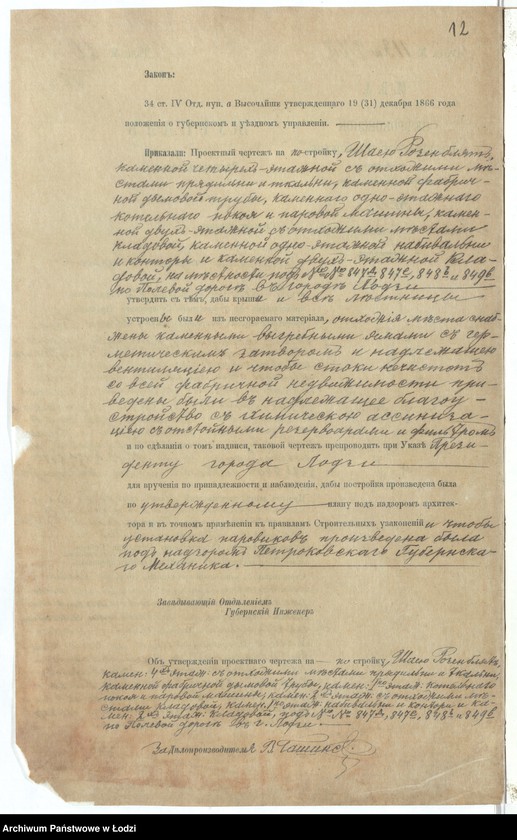 12
Законъ:
34 ст. IV Отд. пун. а Высочайше утвержденнаго 19 (31) декабря 1866 года
положенія о губернскомъ и уѣздномъ управленіи.
Приказали: Проектный чертежъ на постройку, Шаею Розенблятъ,
каменной четырехъ-этажной съ отхожими мѣ-
стами прядильни и ткальни, каменной фабрич-
ной дымовой трубы, каменнаго одно-этажнаго
котельнаго покоя и паровой машины, камен-
ной двухъ-этажной съ отхожими мѣстами
кладовой, каменной одно-этажной набивальни
и конторы и каменной двухъ-этажной кла-
довой, на мѣстности подъ №№ 847а, 847с, 848б и 849б
по Полевой дорогѣ въ городѣ Лодзи
утвердить съ тѣмъ, дабы крыши и всѣ лѣстницы
устроены были изъ несгораемаго матеріала, отхожія мѣста снаб-
жены каменными выгребными ямами съ гер-
метическимъ затворомъ и надлежащею
вентиляціею и чтобы стоки нечистотъ
со всей фабричной недвижимости при-
ведены были въ надлежащее благоу-
стройство съ химическою ассениза-
цією съ отстойными резервоарами и фильтромъ
и по сдѣланіи о томъ надписи, таковой чертежъ препроводить при Указѣ Прези-
денту города Лодзи
для врученія по принадлежности и наблюденія, дабы постройка произведена была
по утвержденному плану подъ надзоромъ архитек-
тора и въ точномъ примѣненіи къ правиламъ Строительныхъ узаконеній и чтобы
установка паровиковъ произведена была
подъ надзоромъ Петроковскаго Губернска-
го Механика.
Завѣдывающій Отдѣленіемъ
Губернскій Инженеръ
Объ утвержденіи проектнаго чертежа на постройку, Шаею Розенблятъ,
камен. 4хъ этаж. съ отхожими мѣстами прядильни и ткальни,
каменной фабричной дымовой трубы, камен. 1но этаж. котельнаго
покоя и паровой машины, камен. 2хъ этаж. съ отхожими мѣ-
стами кладовой, камен. 1но этаж. набивальни и конторы и ка-
мен. 2хъ этаж. кладовой, подъ №№ 847а, 847с, 848б и 849б
по Полевой дорогѣ въ г. Лодзи.
За Дѣлопроизводителя
Archiwum Państwowe w Łodzi
szukajwarchiwach.gov.pl